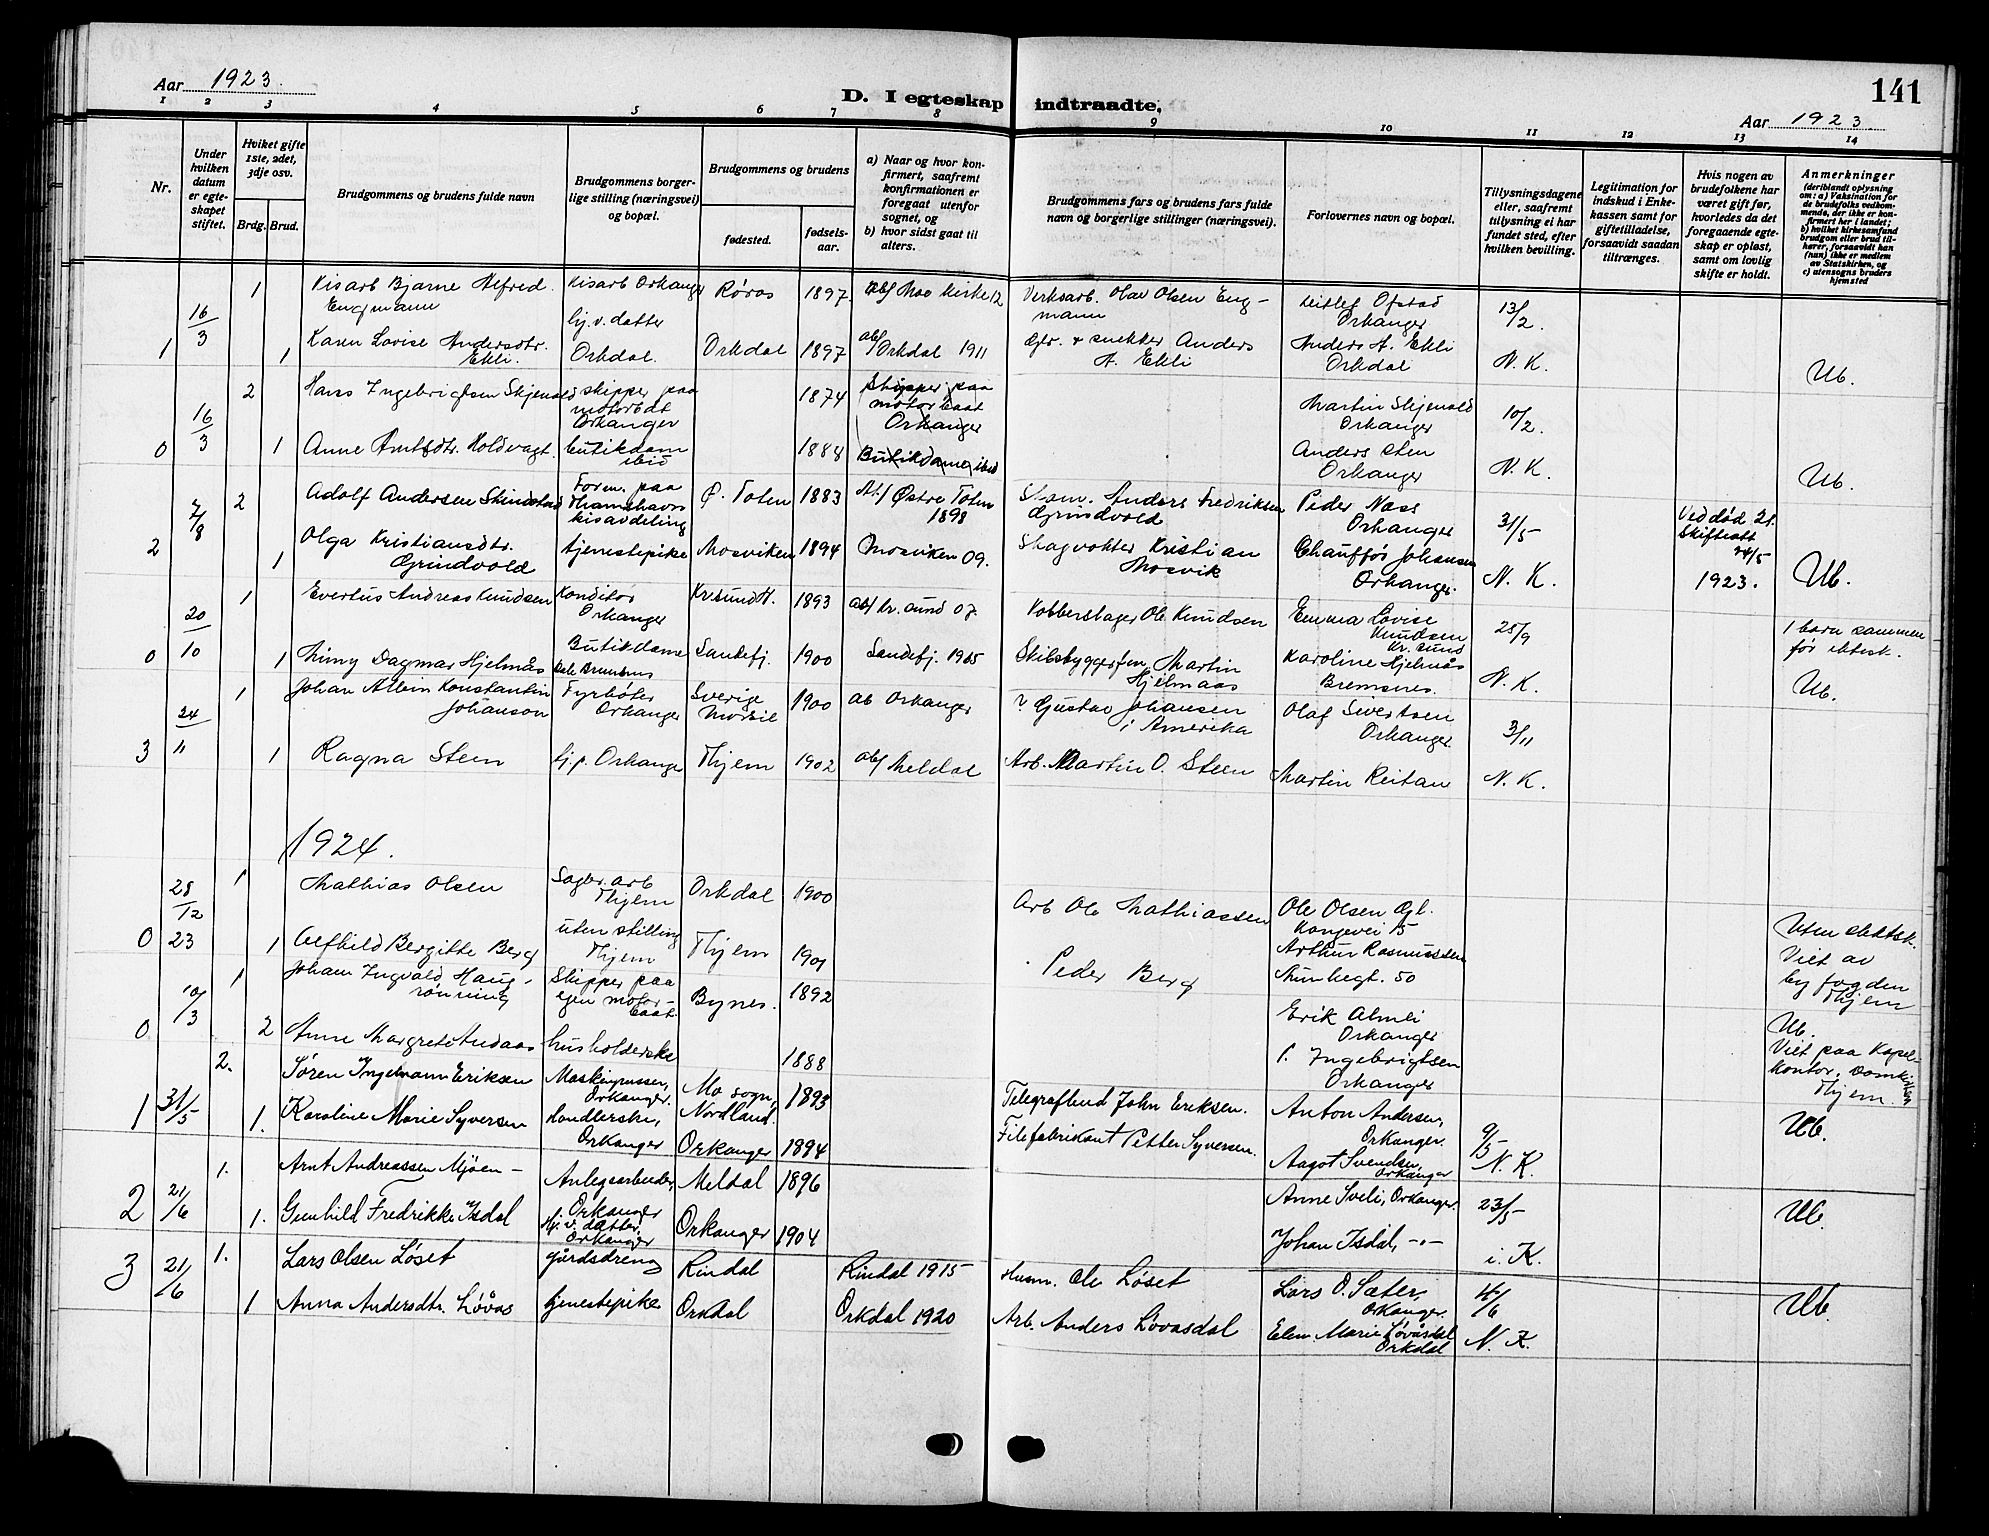 Aar 1923.
D. I egteskap indtraadte,
141
Aar 1923
1 2 3 4 5 6 7 8 9 10 11 12 13 14
Nr.
Under hvilken datum er egteskapet stiftet.
Hviket gifte 1ste, 2det, 3dje osv.
Brdg. Brud.
Brudgommens og brudens fulde navn
Brudgommens borgerlige stilling (næringsvei) og bopæl.
Brudgommens og brudens
fødested.
fødselsaar.
a) Naar og hvor konfirmert, saafremt konfirmationen er foregaat utenfor sognet, og
b) hvor sidst gaat til alters.
Brudgommens fars og brudens fars fulde navn og borgerlige stillinger (næringsvei).
Forlovernes navn og bopæl.
Tillysningsdagene eller, saafremt tillysning ei har fundet sted, efter hvilken bevilling.
Legitimation for indskud i Enkekassen samt for giftetilladelse, forsaavidt saadan tiltrænges.
Hvis nogen av brudefolkene har været gift før, hvorledes da det foregaaende egteskap er opløst, samt om lovlig skifte er holdt.
Anmerkninger
(deriblandt oplysning om: a) Vaksination for de brudefolks vedkommende, der ikke er konfirmert her i landet; b) hvilket kirkesamfund brudgom eller brud tilhører, forsaavidt han (hun) ikke er medlem av Statskirken, og c) utensogns bruders hjemsted
1 16/3 1 Kisarb Bjarne Alfred Engmann Kisarb Orkanger Røros 1897 Mo Kirke 12 Verksarb. Olav Olsen Engmann Ofstad Orkanger 13/2.
1 Karen Lovise Andersdtr. Ekli. hj. v. datter Orkdal. Orkdal 1897 Orkdal 1911 Gbr. & snekker Anders A. Ekli Anders A. Ekli Orkdal N. K. Ub.
0 16/3 2 Hans Ingebrigtsen Skjenald skipper paa motorbåt Orkanger 1874 Skipper paa motorbaat Orkanger Martin Skjenald Orkanger 10/2.
1 Anne Arntsdtr. Holdvagt. butikdam ibid 1884 Butikdame ibid Anders Sten Orkanger N. K. Ub.
2 7/8 2 Adolf Andersen Form. paa Thamshavn kisavdeling Ø. Toten 1883 Østre Toten 1898 Anders Fredriksen Grindvold Peder Næss Orkanger 31/5 Ved død Skifteatt 24/5 1923.
1 Olga Kristiansdtr. Grindvold tjenestepike Mosviken 1894 Mosviken 09. Skogvokter Kristian Mosvik Chauffør Johansen Orkanger. N. K. Ub.
0 20/10 1 Evertus Andreas Knudsen Konditor Orkanger Kr.sund N. 1893 Kr. sund 07. Kobberslager Ole Knudsen Emma Lovise Knudsen Kr. sund 25/9 1 barn sammen før ektesk.
1 Dagmar Hjelmås Butikdame Sandefj. 1900 Sandefj. 1915 Skibsbygger Martin Hjelmaas Karoline Hjelmås Bremsnes. N. K. Ub.
3 24/11 1 Johan Albin Konstantin Johanson Fyrbøter Orkanger Sverige 1900 Orkanger Gustav Johansen i Amerika Olaf Sivertsen Orkanger 3/11
1 Ragna Steen hj. p. Orkange Thjem 1902 Meldal Arb. Martin O. Steen Martin Reitan N. K.
1924.
0 28/12 23 1 Mathias Olsen Sagbr. arb Thjem Orkdal 1900 Arb Ole Mathiassen Ole Olsen Kongevei 15 Uten slektsk.
1 Alfhild Bergitte Berg uten stilling Thjem Thjem 1901 Peder Berg Arthur Rasmussen Munkegt. 50 Viet av byfogden Thjem
0 10/3 1 Johan Ingvald Haugrønning Skipper paa egen motorbaat Bynes. 1892 Erik Almli Orkanger Ub.
2 Anne Margrete Andaas husholderske 1888 P. Ingebrigtsen Orkanger Viet paa Kapelkontor, Domkirken Thjem.
1 31/5 2. Søren Ingelmann Eriksen Maskinpusser, Orkanger. Mo sogn, Nordland. 1893 Telegrafbud John Eriksen. Anton Andersen, Orkanger. 9/5
1. Karoline Marie Syversen Handlerske, Orkanger Orkanger 1894 Filefabrikant Petter Syversen. Aagot Svendsen, Orkanger N. K. Ub.
2 21/6 1. Arnt Andreassen Mjøen - Anlegsarbeider, Orkanger Meldal 1896 Anne Sveli, Orkanger. 23/5
1. Gunhild Fredrikke Isdal Hj. v. datter, Orkanger Orkanger 1904 Johan Isdal, -"- i. K. Ub.
3 21/6 1. Lars Olsen Løset gårdsdreng Rindal Rindal 1915 Husm. Ole Løset Lars O. Sæter, Orkanger. 4/6
1 Anna Andersdtr. Løvås tjenestepike Orkdal Orkdal 1920 Arb. Anders Løvåsdal Elen Marie Løvåsdal Orkdal N. K. Ub.